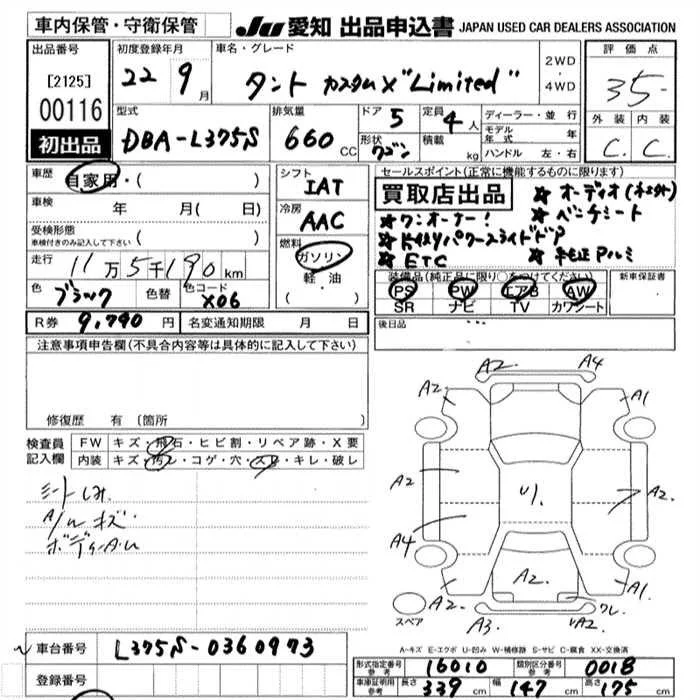 車内保管・守衛保管
JU 愛知 出品申込書 JAPAN USED CAR DEALERS ASSOCIATION
出品番号
[2125]
00116
初出品
初度登録年月
22 9月
車名・グレード
タント カスタムX "Limited"
2WD
・
4WD
評価点
35-
外装 内装
C. C.
型式
DBA-L375S
排気量
660 CC
ドア 5
形状 ワゴン
定員 4人
積載 kg
ディーラー・並行
モデル年式 年
ハンドル 左・右
車歴
自家用・( )
車検 年 月( 日)
受検形態
車検付きのみ記入して下さい ( )
走行
11万5千190km
色 ブラック
色替
色コード X06
シフト
IAT
冷房
AAC
燃料
ガソリン
・
軽・油
R券 9,790円
名変通知期限 月 日
セールスポイント(正常に機能するものに限ります)
買取店出品
★オーディオ(ネオ外)
★ワンオーナー!
★ベンチシート
★片側パワースライドドア
★ETC
★純正アルミ
装備品(純正品に限り○をつけてください)
新車保証書
PS PW エアB AW
SR ナビ TV カワシート
後日品
注意事項申告欄(不具合内容等は具体的に記入して下さい)
修復歴 有 〔箇所
検査員記入欄
FW キズ・飛石・ヒビ割・リペア跡・X要
内装 キズ・汚レ・コゲ・穴・スレ・キレ・破レ
シートしみ
A/W キズ
ボディ小A.U
A2 A4
A2 A1
A2 リ A2
A4
A2 A2 A1
A3 A2 ワレ
スペア
A-キズ E-エクボ U-凹み W-補修跡 S-サビ C-腐食 XX-交換済
車台番号 L375S-0360973
登録番号
形式指定番号 参考 16010
類別区分番号 参考 0018
車庫証明用 参考 長さ 339cm 幅 147cm 高さ 175cm